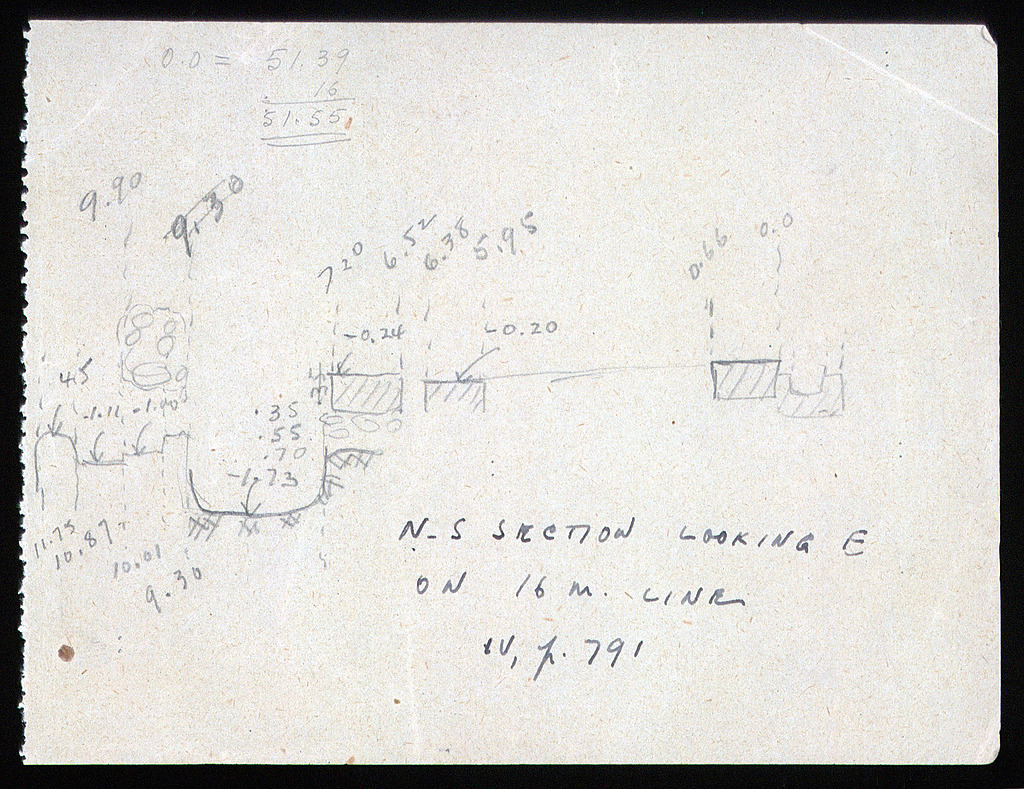 0.0 = 51.39
.16
51.55
9.90
9.30
7.20
6.52
6.38
5.95
0.66
0.0
-0.24
-0.20
45
-1.11
-1.00
.35
.55
.70
-1.73
11.75
10.87
10.01
9.30
N-S SECTION LOOKING E
ON 16 m. LINE
IV, p. 791